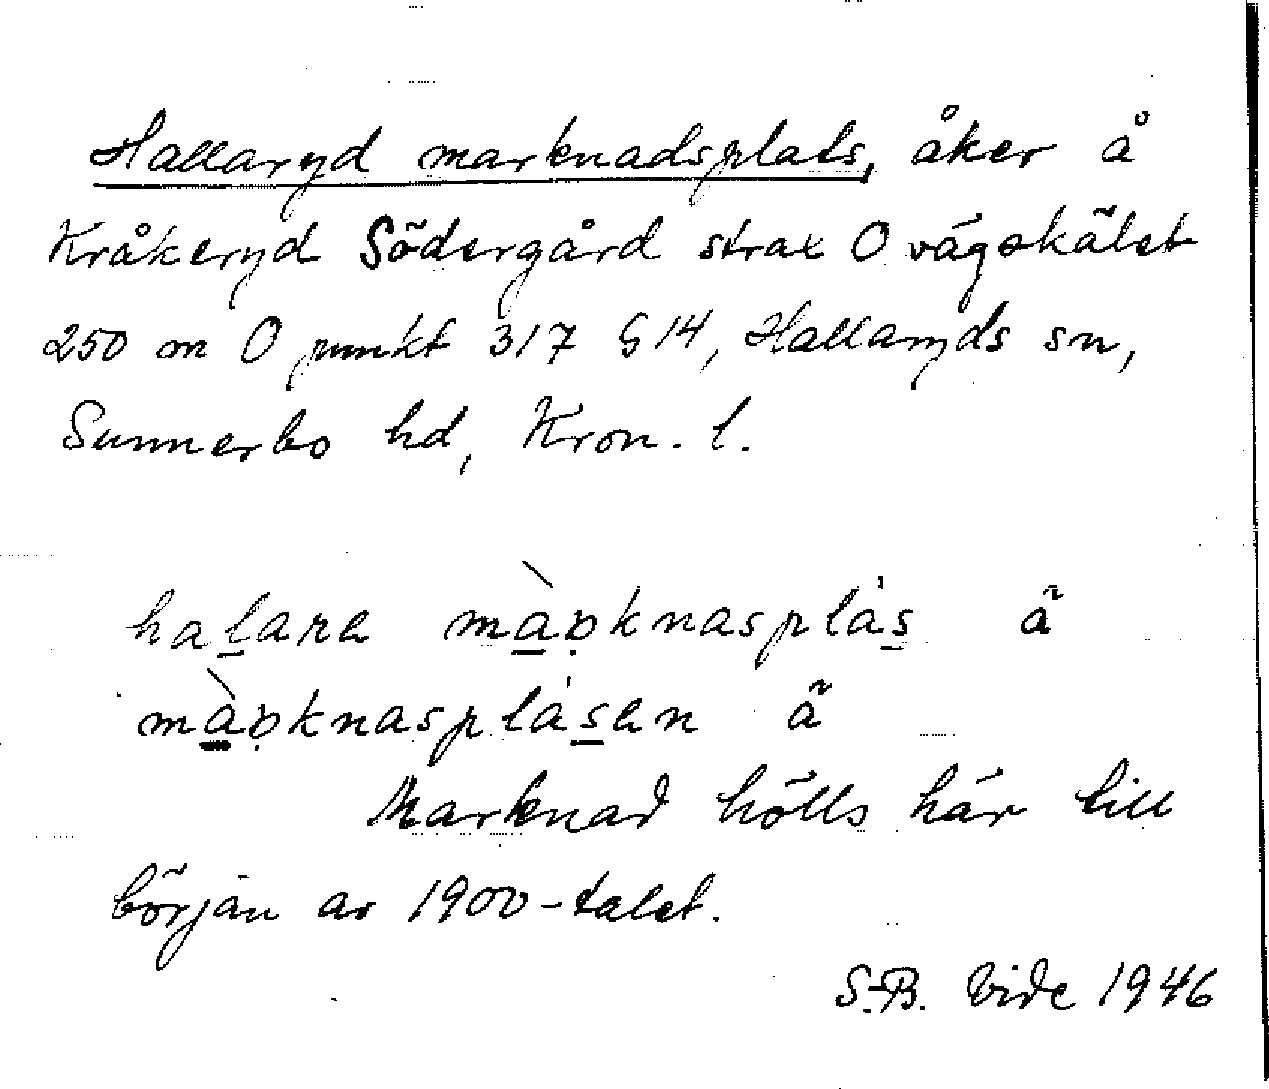 Hallaryd marknadsplats, åker å
Kråkeryd Södergård strax O vägskälet
250 m O punkt 317 § 14, Hallaryds sn,
Sunnerbo hd, Kron. l.
halara màrknasplás ä
màrknasplásen ä
Marknad hölls här till
början av 1900-talet.
S-B. Vide 1946